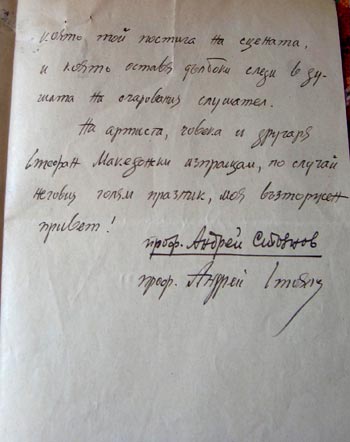 която той постига на сцената,
и която оставя дълбоки следи в ду-
шата на очарования слушател.
На артиста, човека и другаря
Стефан Македонски изпращам, по случай
неговия голям празник, моя възторжен
привет!
проф. Андрей Стоянов
проф. Андрей Стоянов